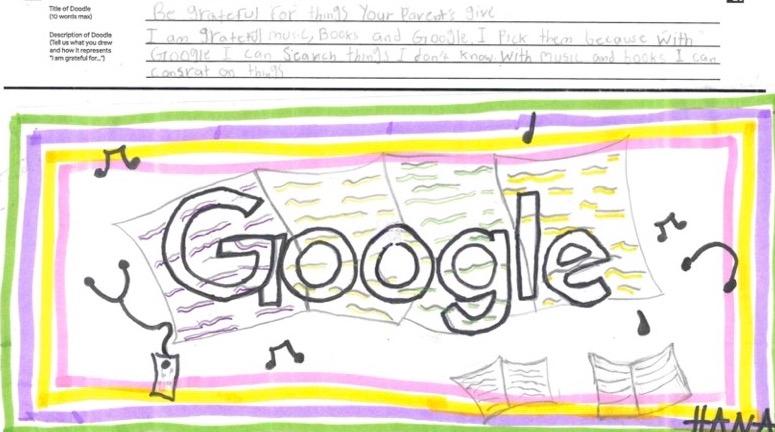 Title of Doodle
(10 words max)
Be grateful for things Your Parent's give
Description of Doodle
(Tell us what you drew
and how it represents
"I am grateful for...")
I am gratefull music, Books and Google. I Pick them because with
Google I can Search things I don't know. With music and books I can
consrat on things
Google
HANA